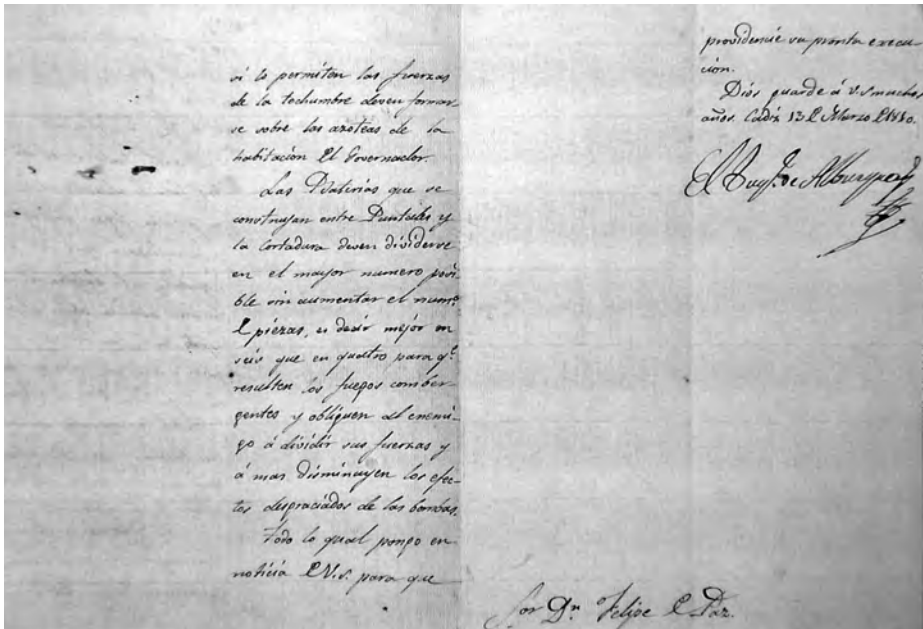 si lo permiten las fuerzas
de la techumbre deven formar
se sobre las azoteas de la
habitacion el Governador.
Las Baterias que se
construyan entre Puntales y
la Cortadura deven dividirse
en el mayor numero posi-
ble sin aumentar el num.º
de piezas, es decir mejor en
seis que en quatro para q.e
resulten los fuegos comber-
gentes y obliguen al enemi-
go á dividir sus fuerzas y
á mas disminuyen los efec-
tos desgraciados de las bombas.
Todo lo qual pongo en
noticia de V.S. para que
providencie su pronta execu-
cion.
Dios guarde á V.S. muchos
años. Cadiz 13 de Marzo de 1810.
El Duq.e de Alburquerq.e
Sor Dn. Felipe de Paz.